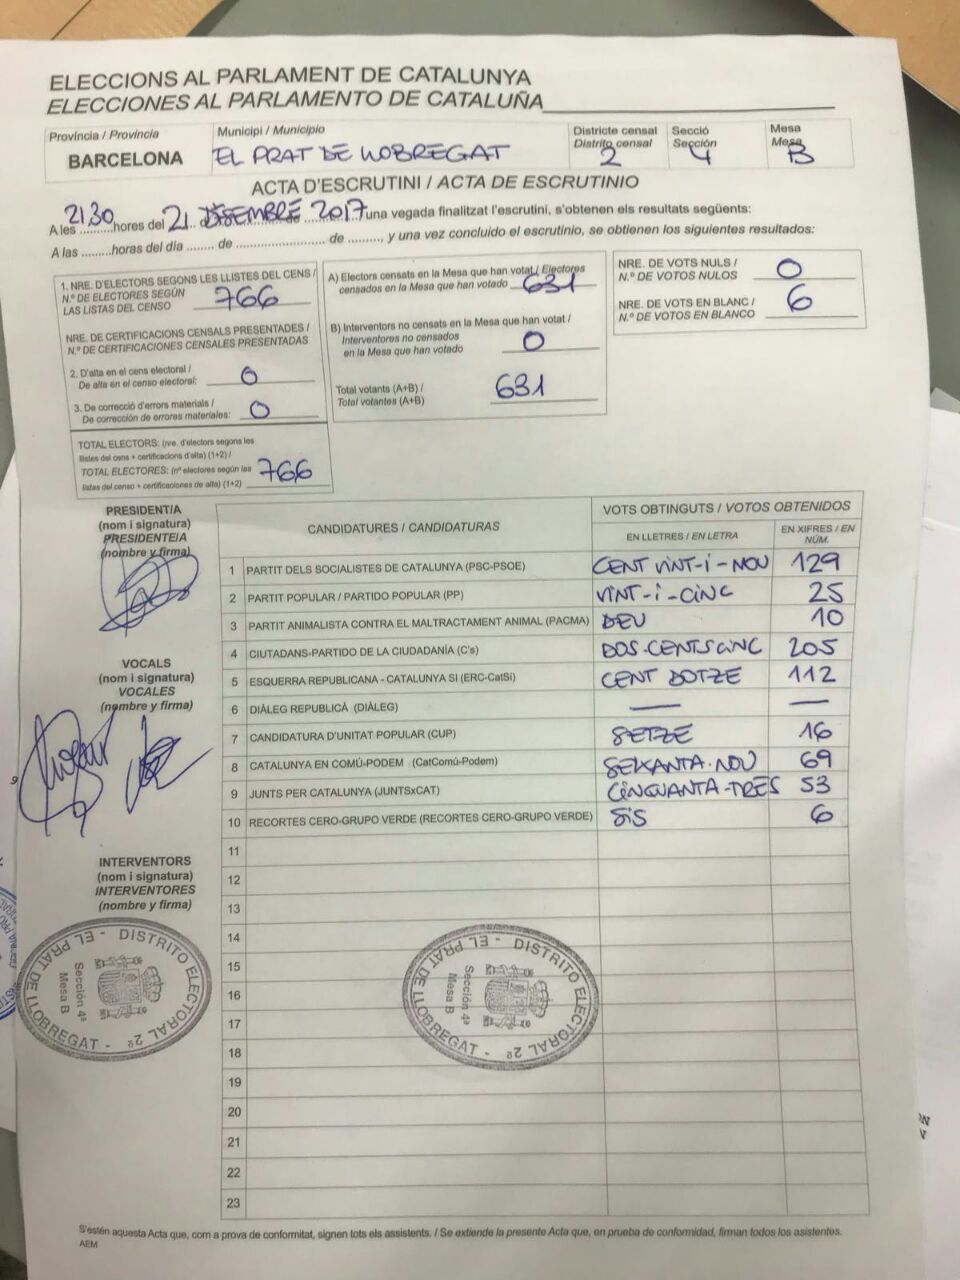 ELECCIONS AL PARLAMENT DE CATALUNYA
ELECCIONES AL PARLAMENTO DE CATALUÑA
Província / Provincia
BARCELONA
Municipi / Municipio
EL PRAT DE LLOBREGAT
Districte censal
Distrito censal
2
Secció
Sección
4
Mesa
Mesa
B
ACTA D'ESCRUTINI / ACTA DE ESCRUTINIO
A les 2130 hores del 21 d DESEMBRE de 2017 una vegada finalitzat l'escrutini, s'obtenen els resultats següents:
A las .........horas del día ........ de .......................... de .........., y una vez concluido el escrutinio, se obtienen los siguientes resultados:
1. NRE. D'ELECTORS SEGONS LES LLISTES DEL CENS /
N.º DE ELECTORES SEGÚN
LAS LISTAS DEL CENSO 766
NRE. DE CERTIFICACIONS CENSALS PRESENTADES /
N.º DE CERTIFICACIONES CENSALES PRESENTADAS
2. D'alta en el cens electoral /
De alta en el censo electoral: 0
3. De correcció d'errors materials /
De corrección de errores materiales: 0
TOTAL ELECTORS: (nre. d'electors segons les
llistes del cens + certificacions d'alta) (1+2) /
TOTAL ELECTORES: (nº electores según las
listas del censo + certificaciones de alta) (1+2) 766
A) Electors censats en la Mesa que han votat / Electores
censados en la Mesa que han votado 631
B) Interventors no censats en la Mesa que han votat /
Interventores no censados
en la Mesa que han votado 0
Total votants (A+B) /
Total votantes (A+B) 631
NRE. DE VOTS NULS /
N.º DE VOTOS NULOS 0
NRE. DE VOTS EN BLANC /
N.º DE VOTOS EN BLANCO 6
PRESIDENT/A
(nom i signatura)
PRESIDENTE/A
(nombre y firma)
VOCALS
(nom i signatura)
VOCALES
(nombre y firma)
INTERVENTORS
(nom i signatura)
INTERVENTORES
(nombre y firma)
CANDIDATURES / CANDIDATURAS
VOTS OBTINGUTS / VOTOS OBTENIDOS
EN LLETRES / EN LETRA
EN XIFRES / EN
NÚM.
1 PARTIT DELS SOCIALISTES DE CATALUNYA (PSC-PSOE) CENT VINT-I-NOU 129
2 PARTIT POPULAR / PARTIDO POPULAR (PP) VINT-I-CINC 25
3 PARTIT ANIMALISTA CONTRA EL MALTRACTAMENT ANIMAL (PACMA) DEU 10
4 CIUTADANS-PARTIDO DE LA CIUDADANÍA (C's) DOS-CENTS CINC 205
5 ESQUERRA REPUBLICANA - CATALUNYA SI (ERC-CatSí) CENT DOTZE 112
6 DIÀLEG REPUBLICÀ (DIÀLEG) — —
7 CANDIDATURA D'UNITAT POPULAR (CUP) SETZE 16
8 CATALUNYA EN COMÚ-PODEM (CatComú-Podem) SEIXANTA-NOU 69
9 JUNTS PER CATALUNYA (JUNTSxCAT) CINQUANTA-TRES 53
10 RECORTES CERO-GRUPO VERDE (RECORTES CERO-GRUPO VERDE) SIS 6
11
12
13
14
15
16
17
18
19
20
21
22
23
DISTRITO ELECTORAL 2º - EL PRAT DE LLOBREGAT -
Sección 4ª
Mesa B
DISTRITO ELECTORAL 2º - EL PRAT DE LLOBREGAT -
Sección 4ª
Mesa B
S'estén aquesta Acta que, com a prova de conformitat, signen tots els assistents. / Se extiende la presente Acta que, en prueba de conformidad, firman todos los asistentes.
AEM